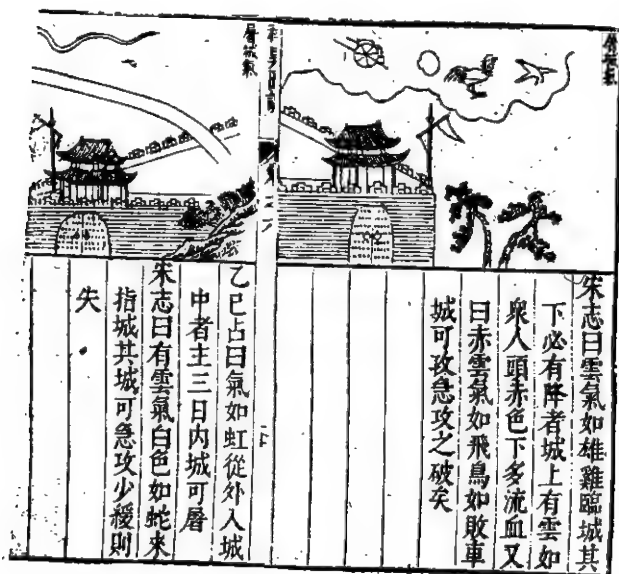 屠城氣
宋志曰雲氣如雄雞臨城其
下必有降者城上有雲如
衆人頭赤色下多流血又
曰赤雲氣如飛鳥如敗車
城可攻急攻之破矣
屠城氣
乙巳占曰氣如虹從外入城
中者主三日内城可屠
宋志曰有雲氣白色如蛇來
指城其城可急攻少緩則
失